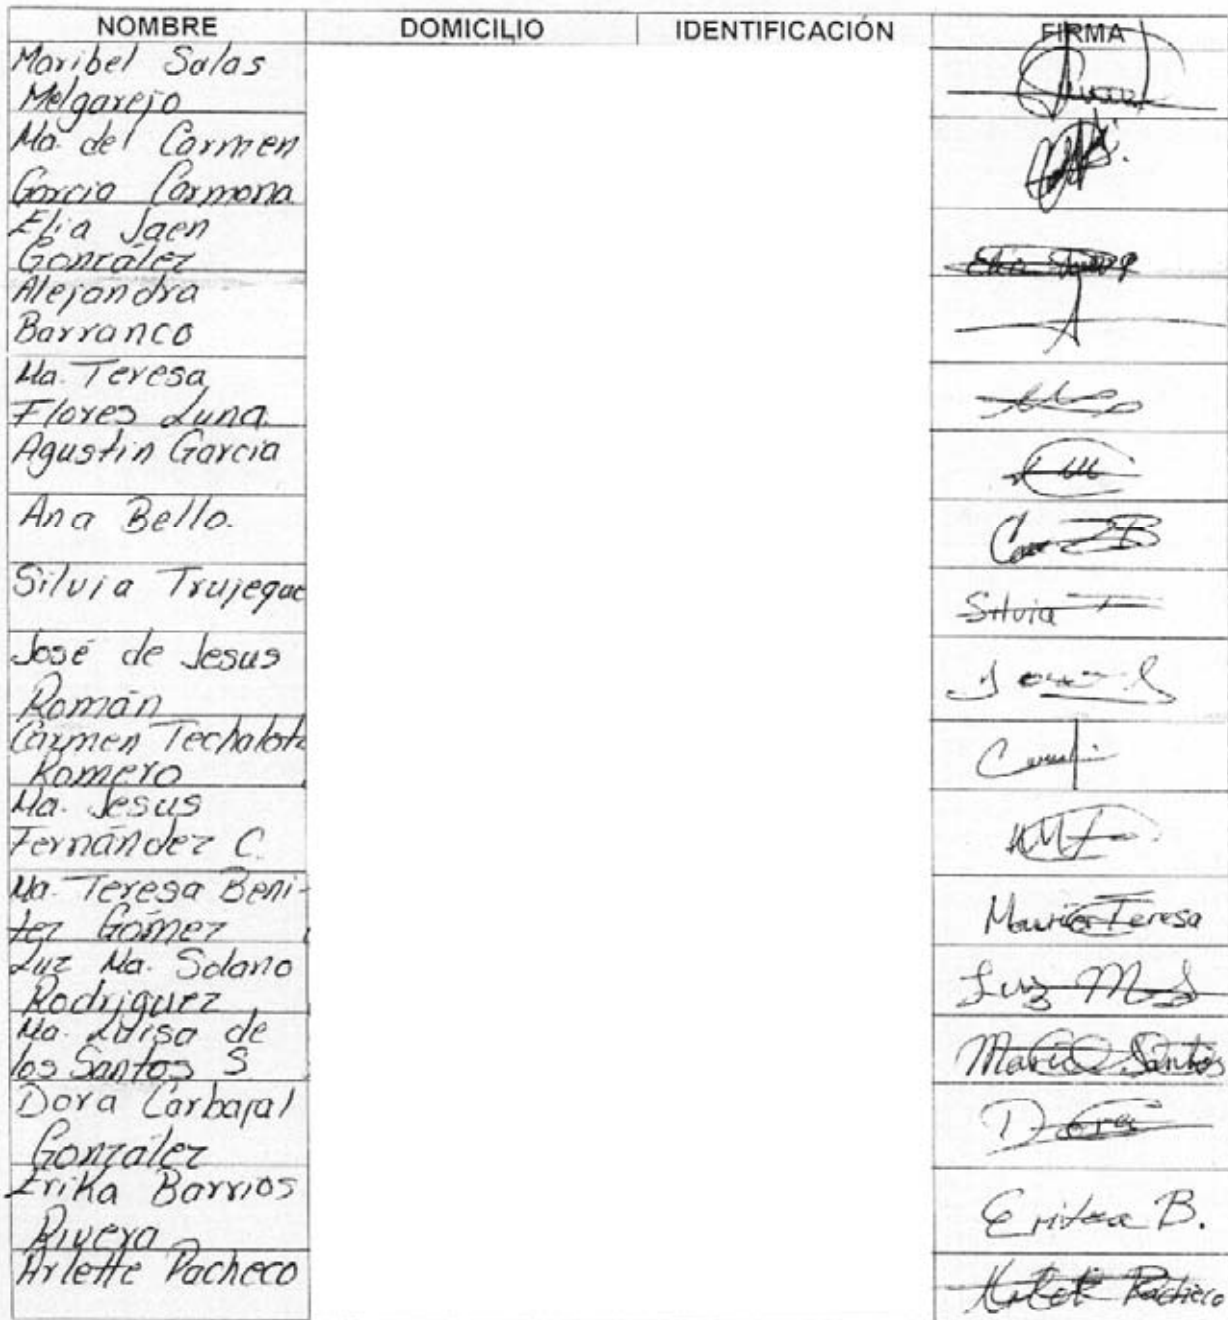 NOMBRE DOMICILIO IDENTIFICACIÓN FIRMA
Maribel Salas
Melgarejo
Ma. del Carmen
Garcia Carmona
Elia Jaen
González
Alejandra
Barranco
Ma. Teresa
Flores Luna.
Agustin Garcia
Ana Bello.
Silvia Trujeque
Silvia T
José de Jesus
Román
Carmen Techalotz
Romero
Ma. Jesus
Fernández C.
Ma. Teresa Beni-
tez Gómez
Maria Teresa
Luz Ma. Solano
Rodriguez
Luz M S
Ma. Luisa de
los Santos S
Maria Santos
Dora Carbajal
González
Dora
Erika Barrios
Rivera
Erika B.
Arlette Pacheco
Arlette Pacheco